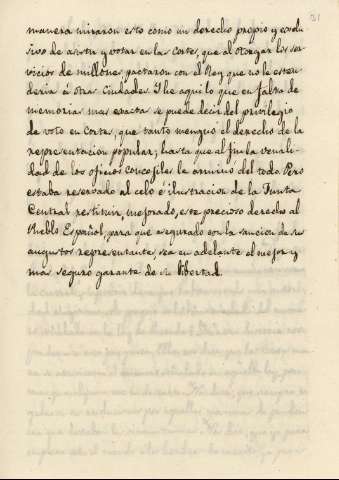 31
manera miraron esto como un derecho propio y esclu
sivo de asistir y votar en las Cortes, que al otorgar los ser
vicios de millones, pactaron con el Rey que no le esten
deria á otras Ciudades. I he aqui lo que en falta de
memorias mas exactas se puede decir del privilegio
de voto en Cortes, que tanto menguó el derecho de la
representacion popular, hasta que al fin la venali-
dad de los oficios concejiles la arruinó del todo. Pero
estaba reservado al celo é ilustracion de la Junta
Central restituir, mejorado, este precioso derecho al
Pueblo Español, para que asegurado con la sancion de sus
augustos representantes, sea en adelante el mejor y
mas seguro garante de su libertad.